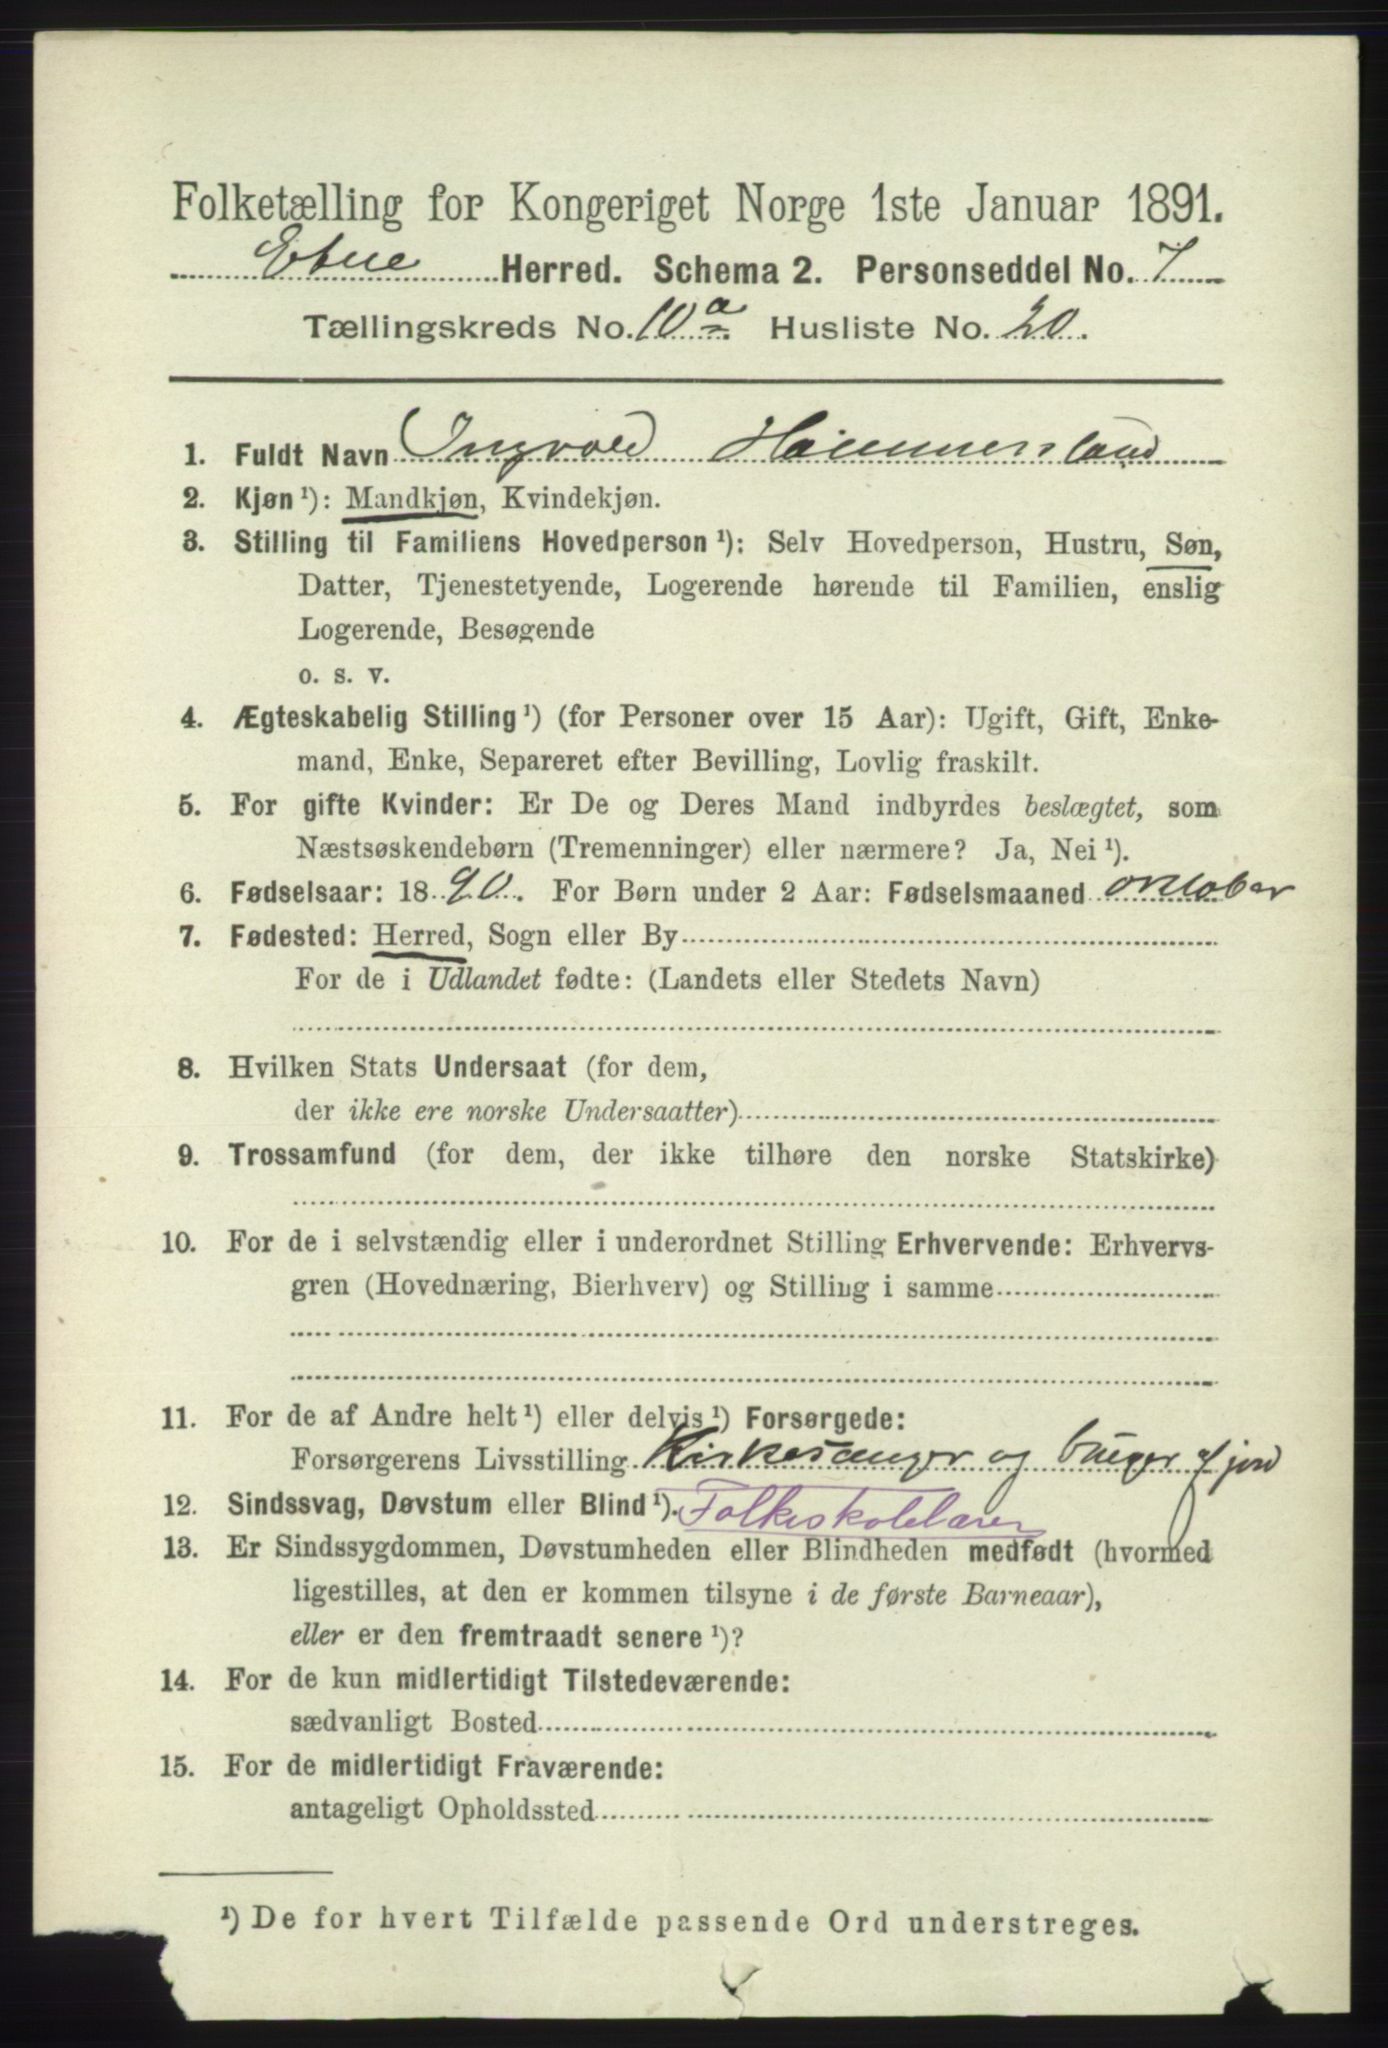 Folketælling for Kongeriget Norge 1ste Januar 1891.
Etne Herred. Schema 2. Personseddel No. 7
Tællingskreds No. 10 a. Husliste No. 20.
1. Fuldt Navn Ingvald Hammersland
2. Kjøn ¹): Mandkjøn, Kvindekjøn.
3. Stilling til Familiens Hovedperson ¹): Selv Hovedperson, Hustru, Søn,
Datter, Tjenestetyende, Logerende hørende til Familien, enslig
Logerende, Besøgende
o. s. v.
4. Ægteskabelig Stilling ¹) (for Personer over 15 Aar): Ugift, Gift, Enke-
mand, Enke, Separeret efter Bevilling, Lovlig fraskilt.
5. For gifte Kvinder: Er De og Deres Mand indbyrdes beslægtet, som
Næstsøskendebørn (Tremenninger) eller nærmere? Ja, Nei ¹).
6. Fødselsaar: 1890. For Børn under 2 Aar: Fødselsmaaned oktober
7. Fødested: Herred, Sogn eller By
For de i Udlandet fødte: (Landets eller Stedets Navn)
8. Hvilken Stats Undersaat (for dem,
der ikke ere norske Undersaatter)
9. Trossamfund (for dem, der ikke tilhøre den norske Statskirke)
10. For de i selvstændig eller i underordnet Stilling Erhvervende: Erhvervs-
gren (Hovednæring, Bierhverv) og Stilling i samme
11. For de af Andre helt ¹) eller delvis ¹) Forsørgede:
Forsørgerens Livsstilling Kirkesanger og bruger af jord
12. Sindssvag, Døvstum eller Blind ¹). Folkeskolelærer
13. Er Sindssygdommen, Døvstumheden eller Blindheden medfødt (hvormed
ligestilles, at den er kommen tilsyne i de første Barneaar),
eller er den fremtraadt senere ¹)?
14. For de kun midlertidigt Tilstedeværende:
sædvanligt Bosted
15. For de midlertidigt Fraværende:
antageligt Opholdssted
¹) De for hvert Tilfælde passende Ord understreges.